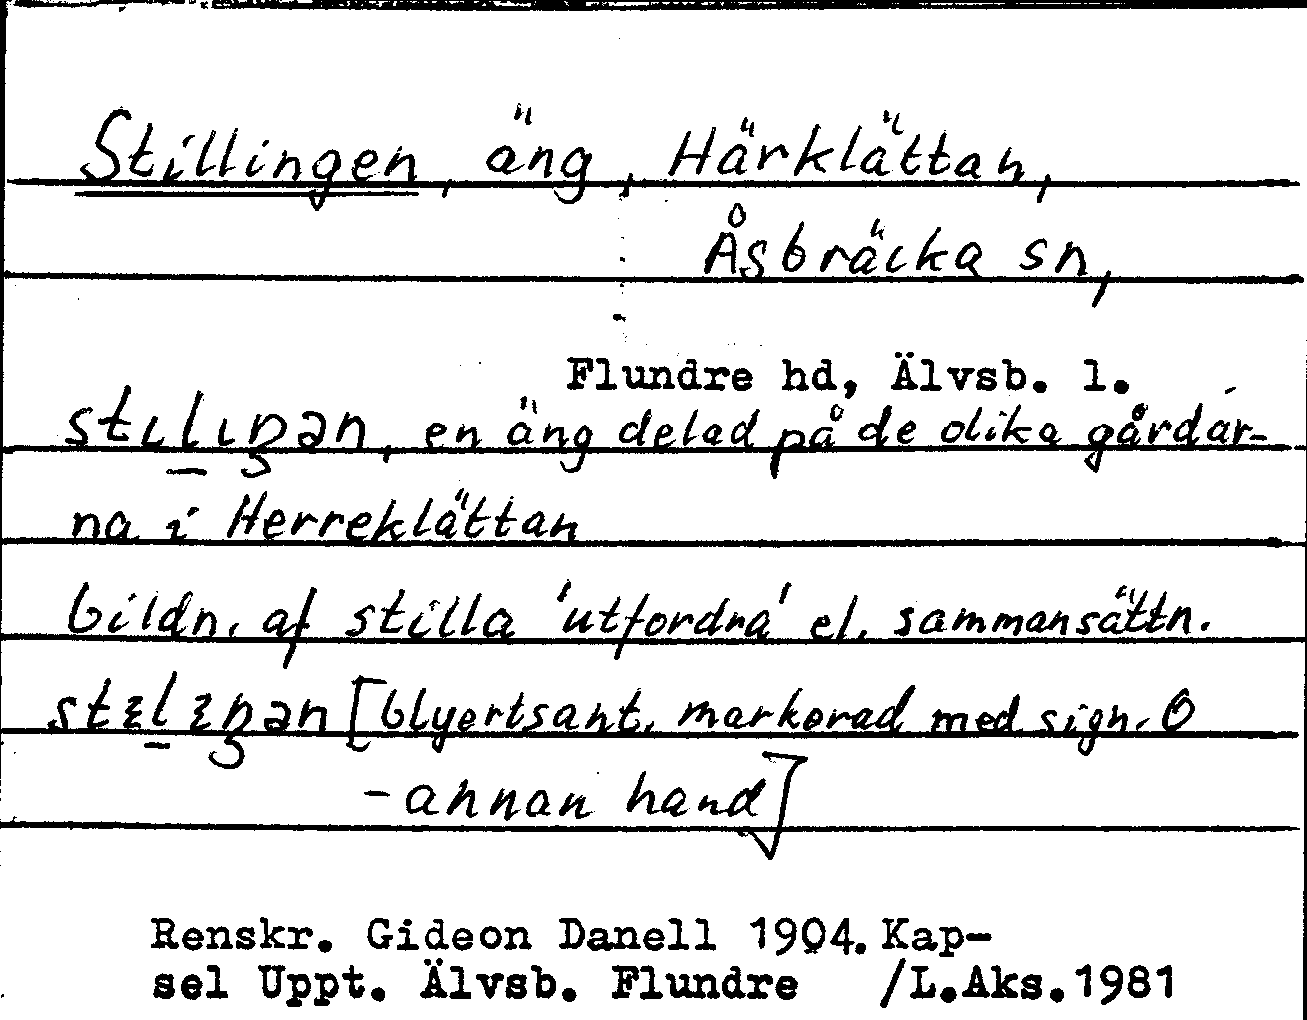 Stillingen, äng, Härklättan,
Åsbräcka sn,
Flundre hd, Älvsb. l.
stılıŋən, en äng delad på de olika gårdar-
na i Herreklättan
bildn. af stilla 'utfordra' el. sammansättn.
[blyertsant. markerad med sign. O
- annan hand]
Renskr. Gideon Danell 1904. Kap-
sel Uppt. Älvsb. Flundre /L.Aks.1981